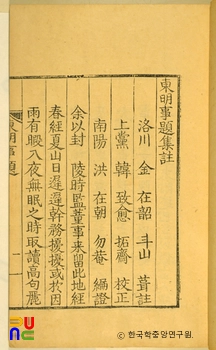 東明事題集註
洛川 金 在韶 斗山 箚註
上黨 韓 致愈 拓齋 校正
南陽 洪 在朝 勿菴 編證
余以封 陵時監董事來留此地經
春經夏山日遲遲幹務擾擾或於因
雨有暇入夜無眠之時取讀高句麗
東明事題
一
FUNC
한국학중앙연구원.